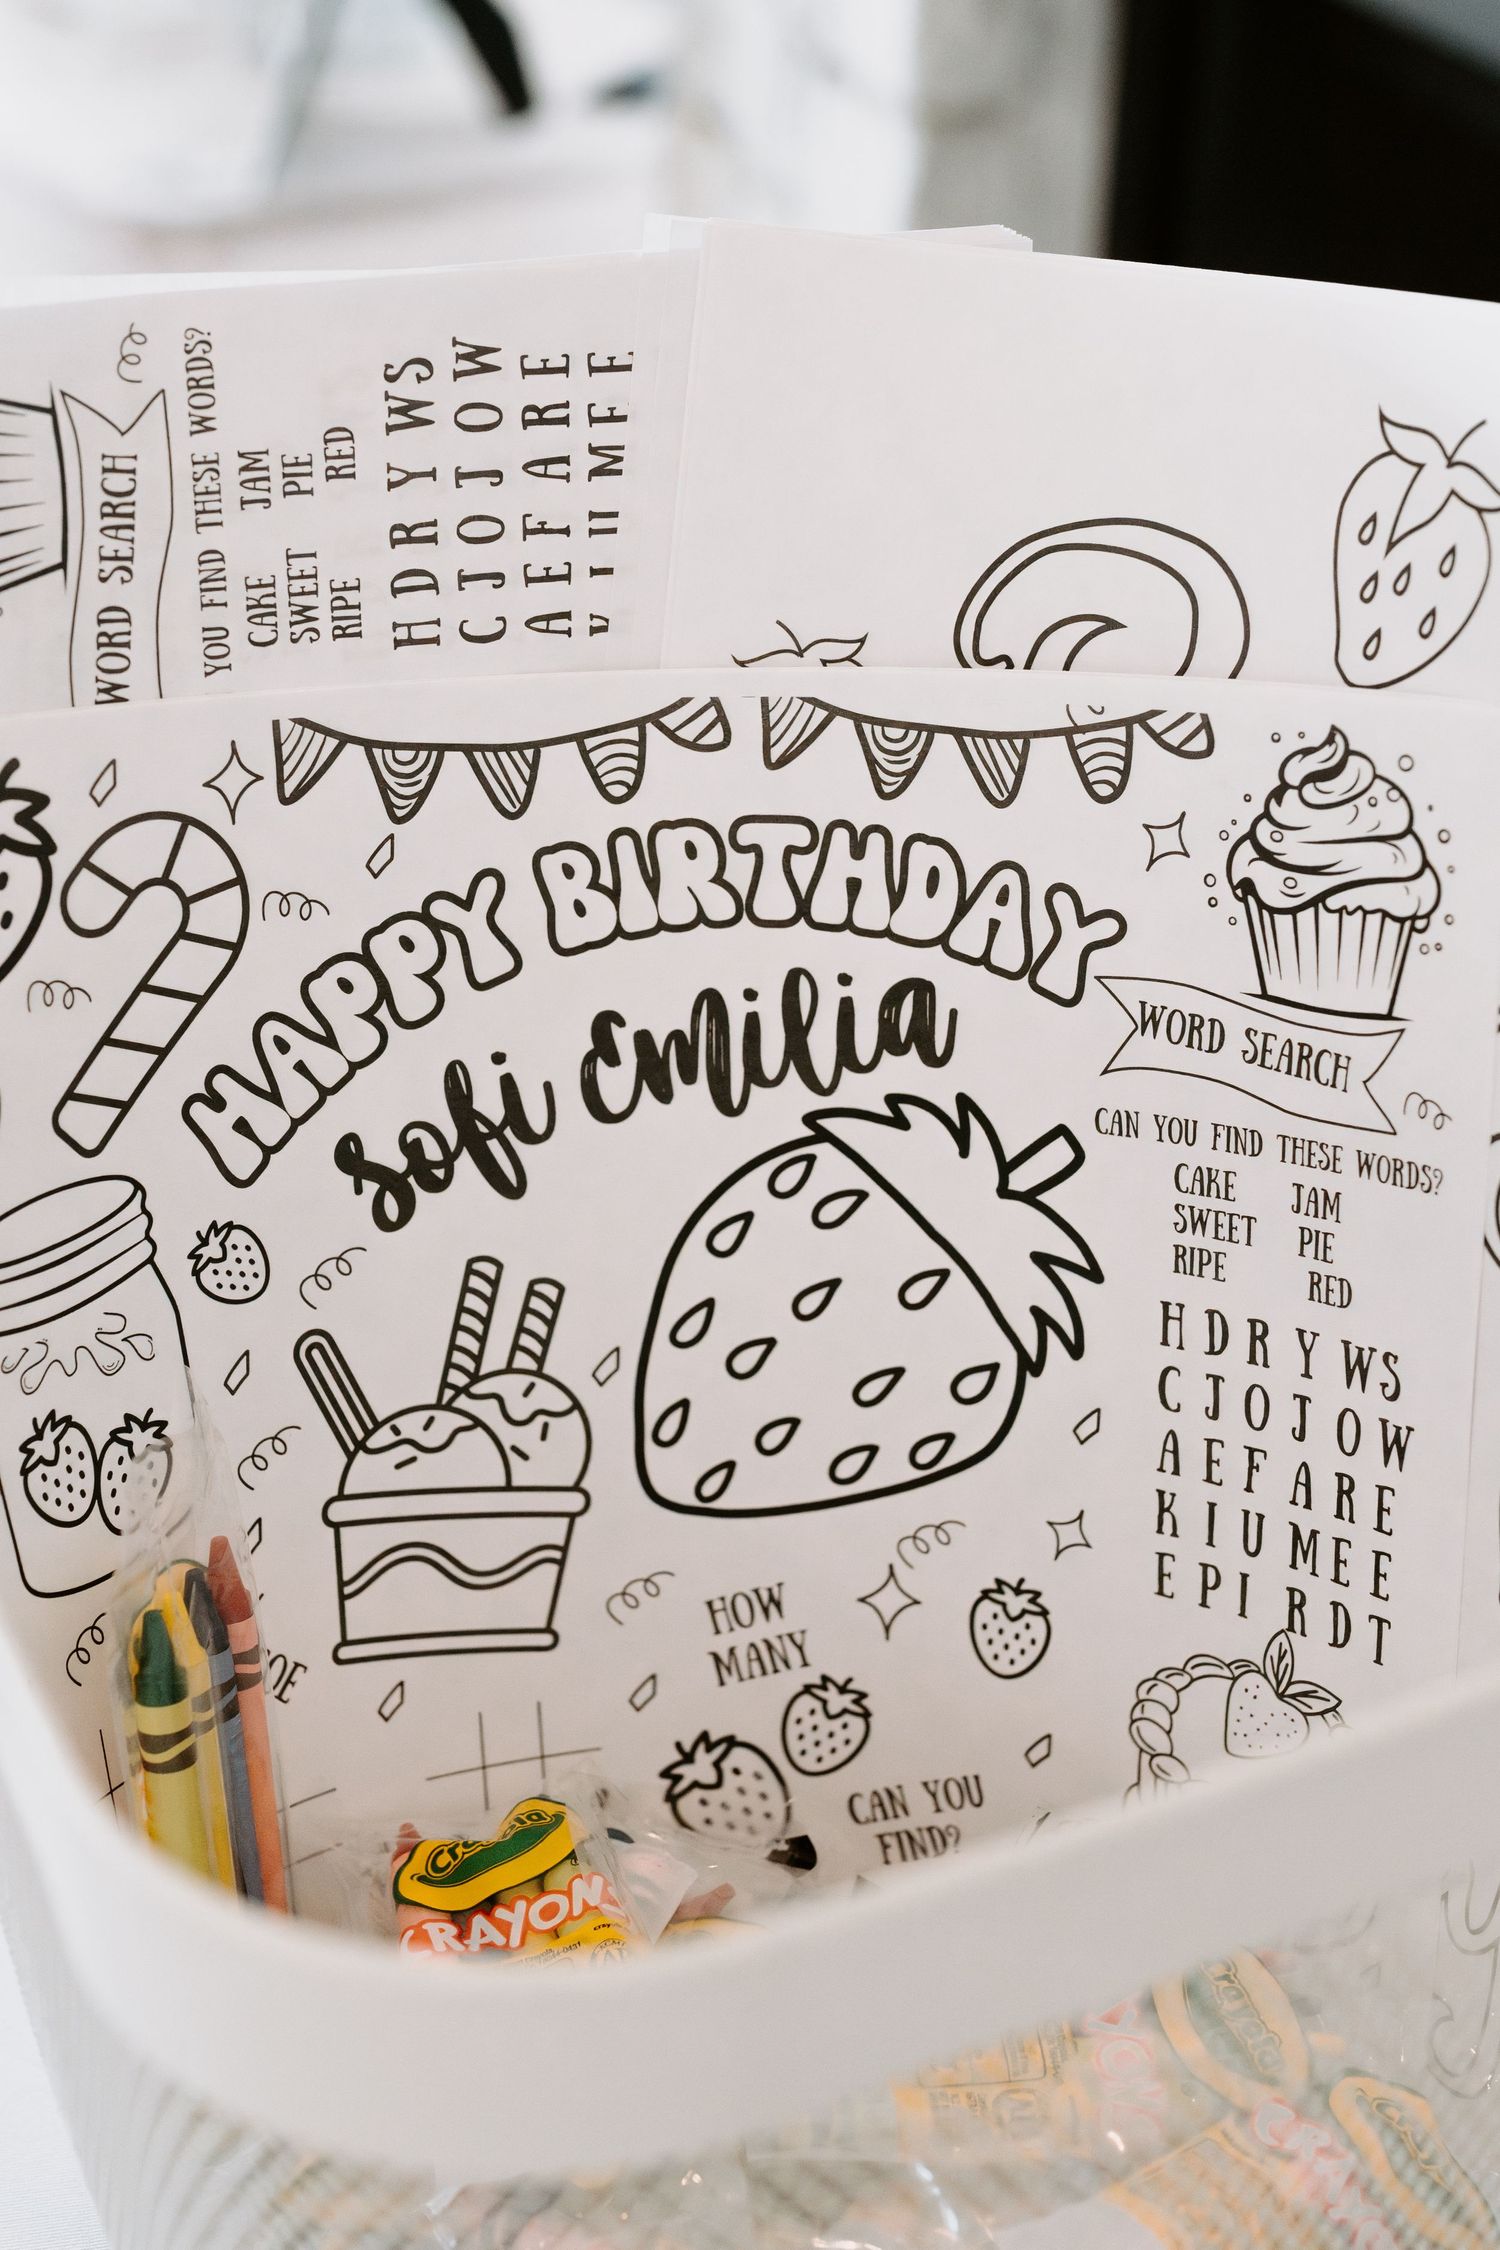 WORD SEARCH
YOU FIND THESE WORDS?
CAKE JAM
SWEET PIE
RIPE RED
H D R Y W S
C J O J O W
A E F A R E
HAPPY BIRTHDAY
Sofi Emilia
WORD SEARCH
CAN YOU FIND THESE WORDS?
CAKE JAM
SWEET PIE
RIPE RED
H D R Y W S
C J O J O W
A E F A R E
K I U M E E
E P I R D T
HOW
MANY
CAN YOU
FIND?
OE
Crayola
CRAYONS
Crayola
CRAYONS